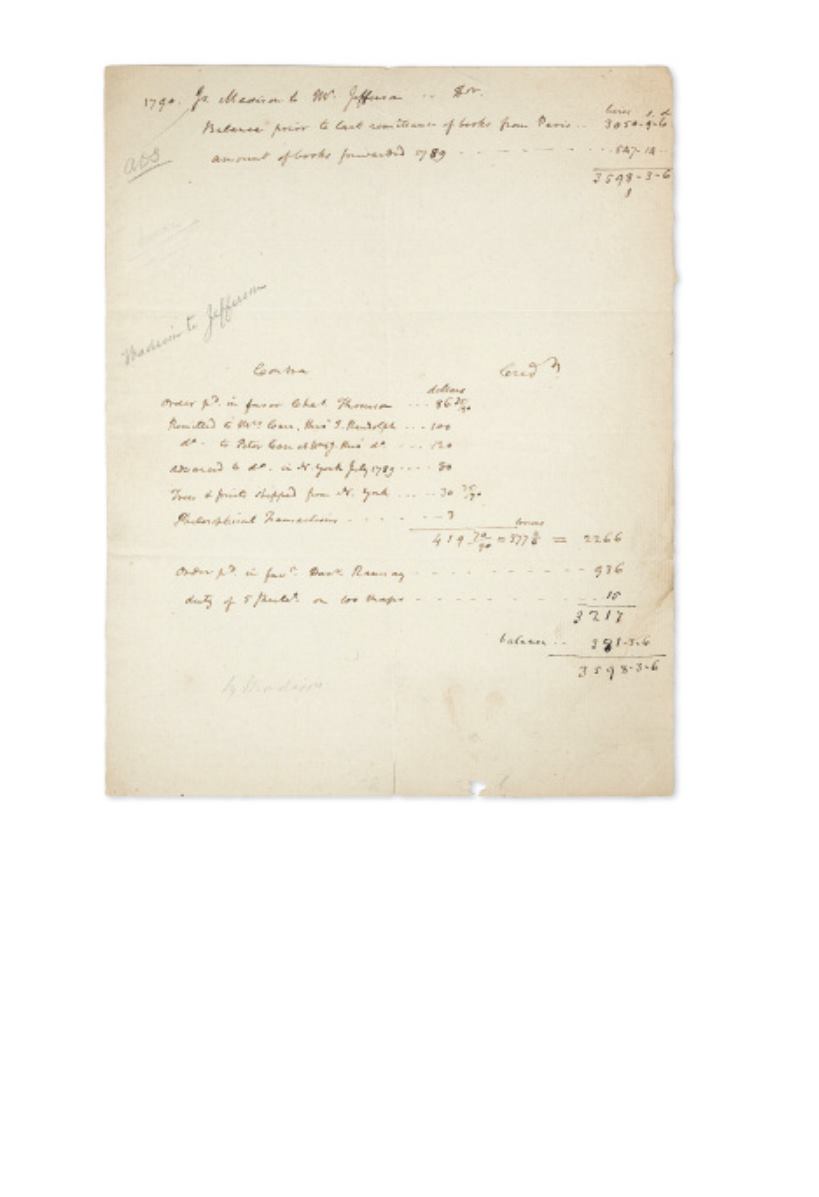 1790. Js. Madison to Mr. Jefferson .. Dr.
livres s. d
Balance prior to last remittance of books from Paris .. 3050-9-6
amount of books forwarded 1789 - - - - 547-14
ADS
3598-3-6
Madison to Jefferson
Contra Credr
dollars
order pd. in favor Chas. Thomson ... 86
Remitted to Mrs Carr, thro' T. Randolph ... 100
do. to Peter Carr at Wm thro' do ... 120
advanced to do. in N. York July 1789 .... 80
Trees & fruits shipped from N. York ... 30
Philosophical Transactions ..... 3
419 70/90 = 377 = 2266
Order pd. in favr. Ramsay - - - - 936
duty of 5 PerCt. on 100 maps - - - - 15
3217
balance .. 381-3-6
3598-3-6
by Madison